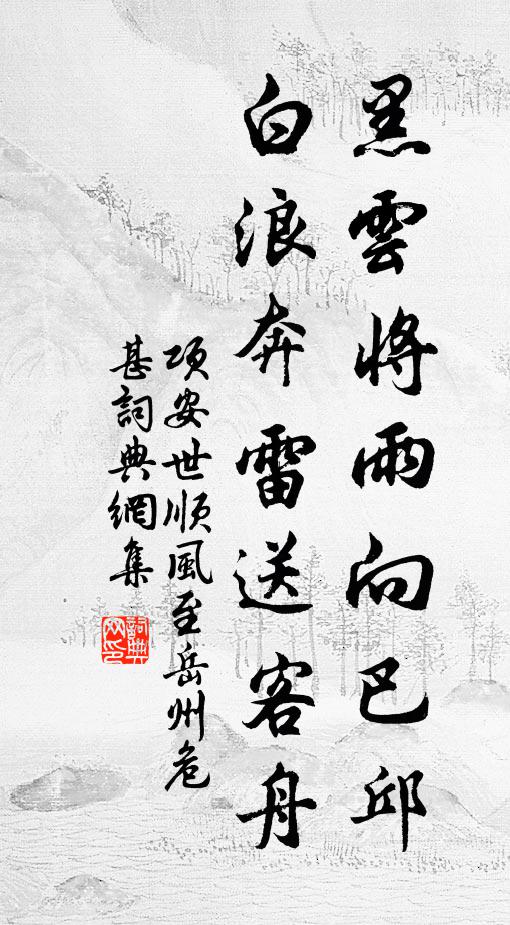 黑雲將雨向巴邱
白浪奔雷送客舟
項安世順風至岳州危
甚詞典網集
詞典網印